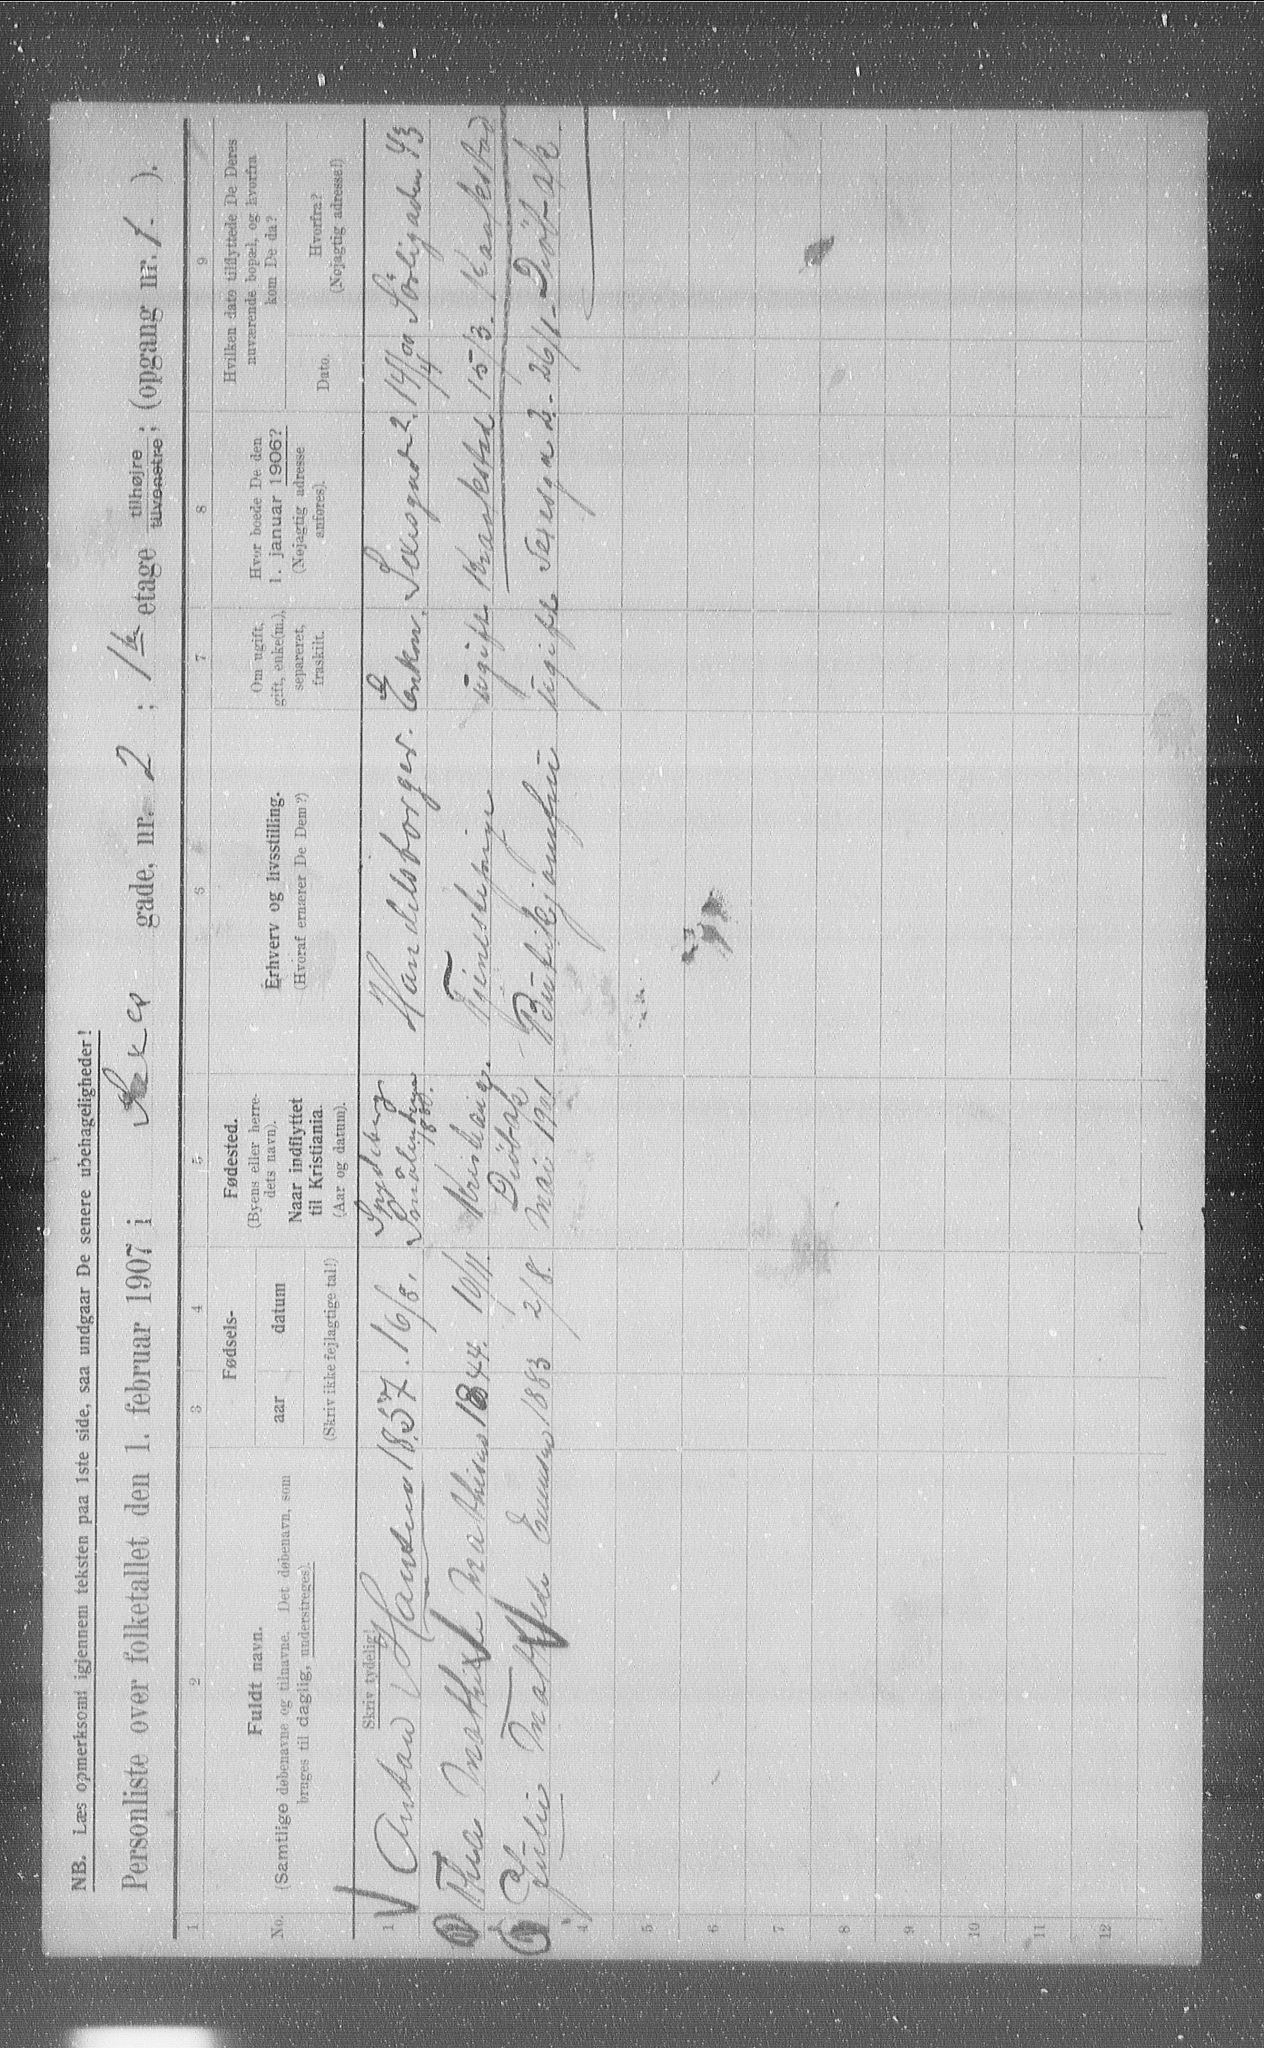 NB. Læs opmerksomt igjennem teksten paa 1ste side, saa undgaar De senere ubehageligheder!
Personliste over folketallet den 1. februar 1907 i gade, nr. 2 ; 1ste etage tilhøjre; tilvenstre; (opgang nr. 1. ).
1 2 3 4 5 6 7 8 9
No.
Fuldt navn.
(Samtlige døbenavne og tilnavne. Det døbenavn, som
bruges til daglig, understreges).
Fødsels-
aar datum
(Skriv ikke fejlagtige tal!)
Fødested.
(Byens eller herre-
dets navn).
Naar indflyttet
til Kristiania.
(Aar og datum).
Erhverv og livsstilling.
(Hvoraf ernærer De Dem?)
Om ugift,
gift, enke(m.),
separeret,
fraskilt.
Hvor boede De den
1. januar 1906?
(Nøjagtig adresse
anføres).
Hvilken dato tilflyttede De Deres
nuværende bopæl, og hvorfra
kom De da?
Dato.
Hvorfra?
(Nøjagtig adresse!)
Skriv tydelig!
1 Anton Hansen 1857. 16/8. Spydeberg Smålenene 1880. Handelsborger. Enkm. 14/4 00 Sörligaden 43
Mathilde Mathisen 1844. 10/11. Kristiania. Tjenestepige ugift 15/3
Julie Mathilde 1883 2/8. Dröbak mai 1901 Butikjomfru ugift 26/1 Dröbak
4
5
6
7
8
9
10
11
12